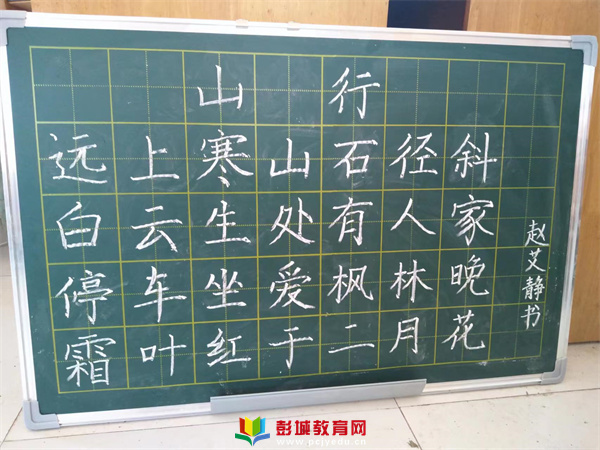 山行
远上寒山石径斜
白云生处有人家
停车坐爱枫林晚
霜叶红于二月花
赵艾静书
彭城教育网
www.pcjyedu.cn